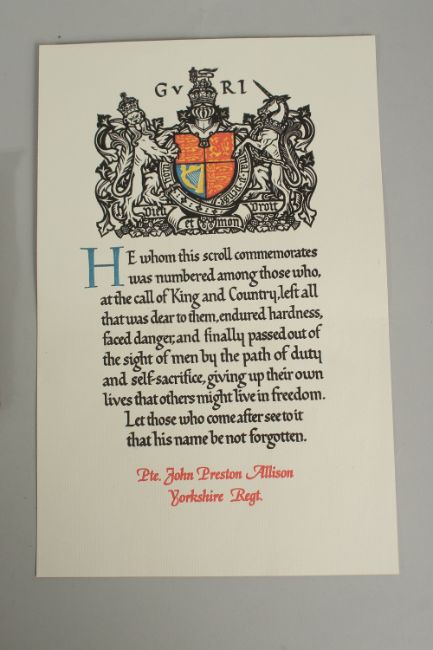 GV RI
Dieu et mon Droit
HE whom this scroll commemorates
was numbered among those who,
at the call of King and Country, left all
that was dear to them, endured hardness,
faced danger, and finally passed out of
the sight of men by the path of duty
and self-sacrifice, giving up their own
lives that others might live in freedom.
Let those who come after see to it
that his name be not forgotten.
Pte. John Preston Allison
Yorkshire Regt.